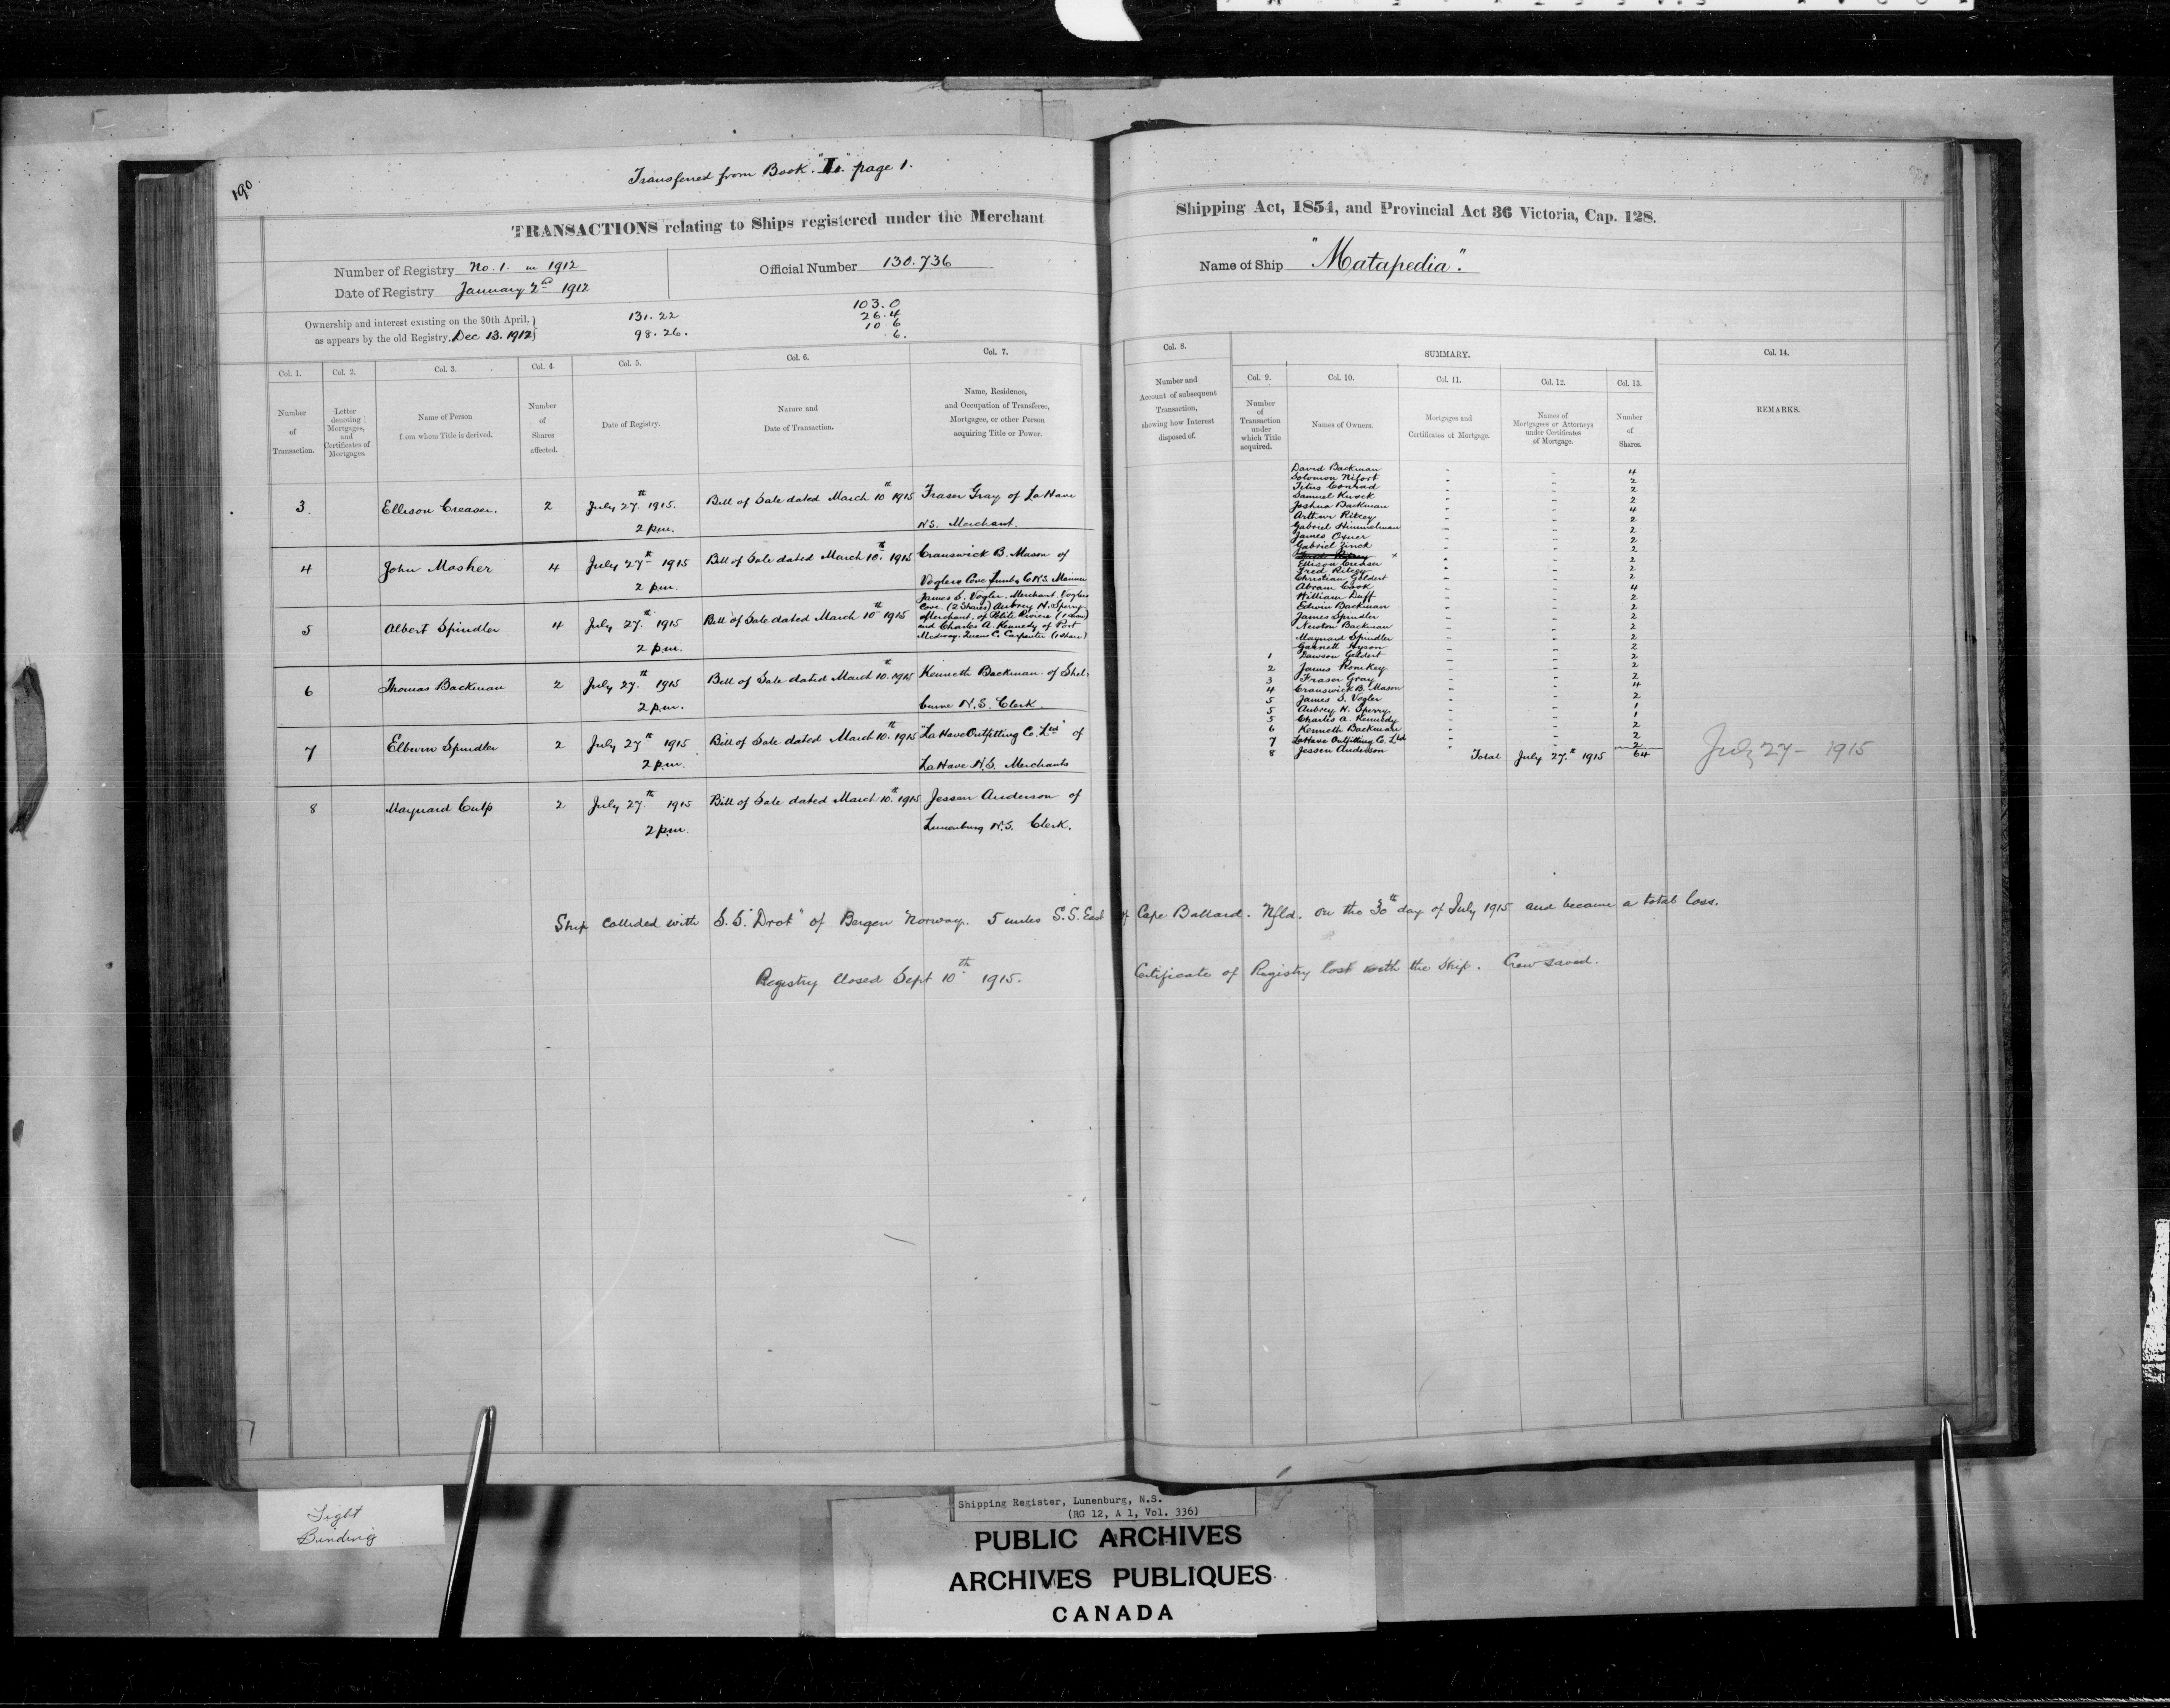 190
Transferred from Book "L" page 1.
TRANSACTIONS relating to Ships registered under the Merchant Shipping Act, 1854, and Provincial Act 36 Victoria, Cap. 128.
Number of Registry No. 1. in 1912
Date of Registry January 2nd 1912
Official Number 130.736
Name of Ship "Matapedia".
Ownership and interest existing on the 30th April,
as appears by the old Registry. Dec 13. 1912
131.22
98.26.
103.0
26.4
10 6
.6.
Col. 1.
Number of Transaction.
Col. 2.
Letter denoting Mortgages, and Certificates of Mortgages.
Col. 3.
Name of Person from whom Title is derived.
Col. 4.
Number of Shares affected.
Col. 5.
Date of Registry.
Col. 6.
Nature and Date of Transaction.
Col. 7.
Name, Residence, and Occupation of Transferee, Mortgagee, or other Person acquiring Title or Power.
Col. 8.
Number and Account of subsequent Transaction, showing how Interest disposed of.
SUMMARY.
Col. 9.
Number of Transaction under which Title acquired.
Col. 10.
Names of Owners.
Col. 11.
Mortgages and Certificates of Mortgage.
Col. 12.
Names of Mortgagees or Attorneys under Certificates of Mortgage.
Col. 13.
Number of Shares.
Col. 14.
REMARKS.
3. Ellison Creaser. 2 July 27th 1915. Bill of Sale dated March 10th 1915 Fraser Gray of LaHave
2 p.m. N.S. Merchant.
4 John Mosher 4 July 27th 1915 Bill of Sale dated March 10th 1915 Cranswick B. Mason of
2 p.m. Voglers Cove Lunbg Co N.S. Mariner
5 Albert Spindler 4 July 27th 1915 Bill of Sale dated March 10th 1915
2 p.m.
James S. Vogler. Merchant. Voglers
Cove. (2 Shares) Aubrey N. Sperry
Merchant. of Petite Riviere (1 share)
and Charles A. Kennedy of Port
Medway. Queens C. Carpenter (1 share)
6 Thomas Backman 2 July 27th 1915 Bill of Sale dated March 10th 1915 Kenneth Backman of Shel-
2 p.m. burne N.S. Clerk.
7 Elburn Spindler 2 July 27th 1915 Bill of Sale dated March 10th 1915 "LaHave Outfitting Co. Ltd" of
2 p.m. LaHave N.S. Merchants
8 Maynard Culp 2 July 27th 1915 Bill of Sale dated March 10th 1915 Jessen Anderson of
2 p.m. Lunenburg N.S. Clerk.
David Backman 4
Solomon Nifort 2
Titus Conrad 2
Samuel Knock 2
Joshua Backman 4
Arthur Ritcey 2
Gabriel Himmelman 2
James Oxner 2
Gabriel Zinck 2
Ellison Creaser 2
Fred Ritcey 2
Christian Geldert 2
Abram Cook 4
William Duff 2
Edwin Backman 2
James Spindler 2
Newton Backman 2
Maynard Spindler 2
Garnett Hyson 2
1 Dawson Geldert 2
2 James Romkey 2
3 Fraser Gray 2
4 Cranswick B. Mason 4
5 James S. Vogler 2
5 Aubrey N. Sperry. 1
5 Charles A. Kennedy 1
6 Kenneth Backman 2
7 LaHave Outfitting Co. Ltd 2
8 Jessen Anderson 2
Total July 27th 1915 64
July 27 - 1915
Ship collided with S.S. "Drot" of Bergen Norway. 5 miles S.S. East of Cape Ballard. Nfld. on the 30th day of July 1915 and became a total loss.
Registry closed Sept 10th 1915. Certificate of Registry lost with the Ship. Crew saved.
Tight
Binding
Shipping Register, Lunenburg, N.S.
(RG 12, A 1, Vol. 336)
PUBLIC ARCHIVES
ARCHIVES PUBLIQUES
CANADA